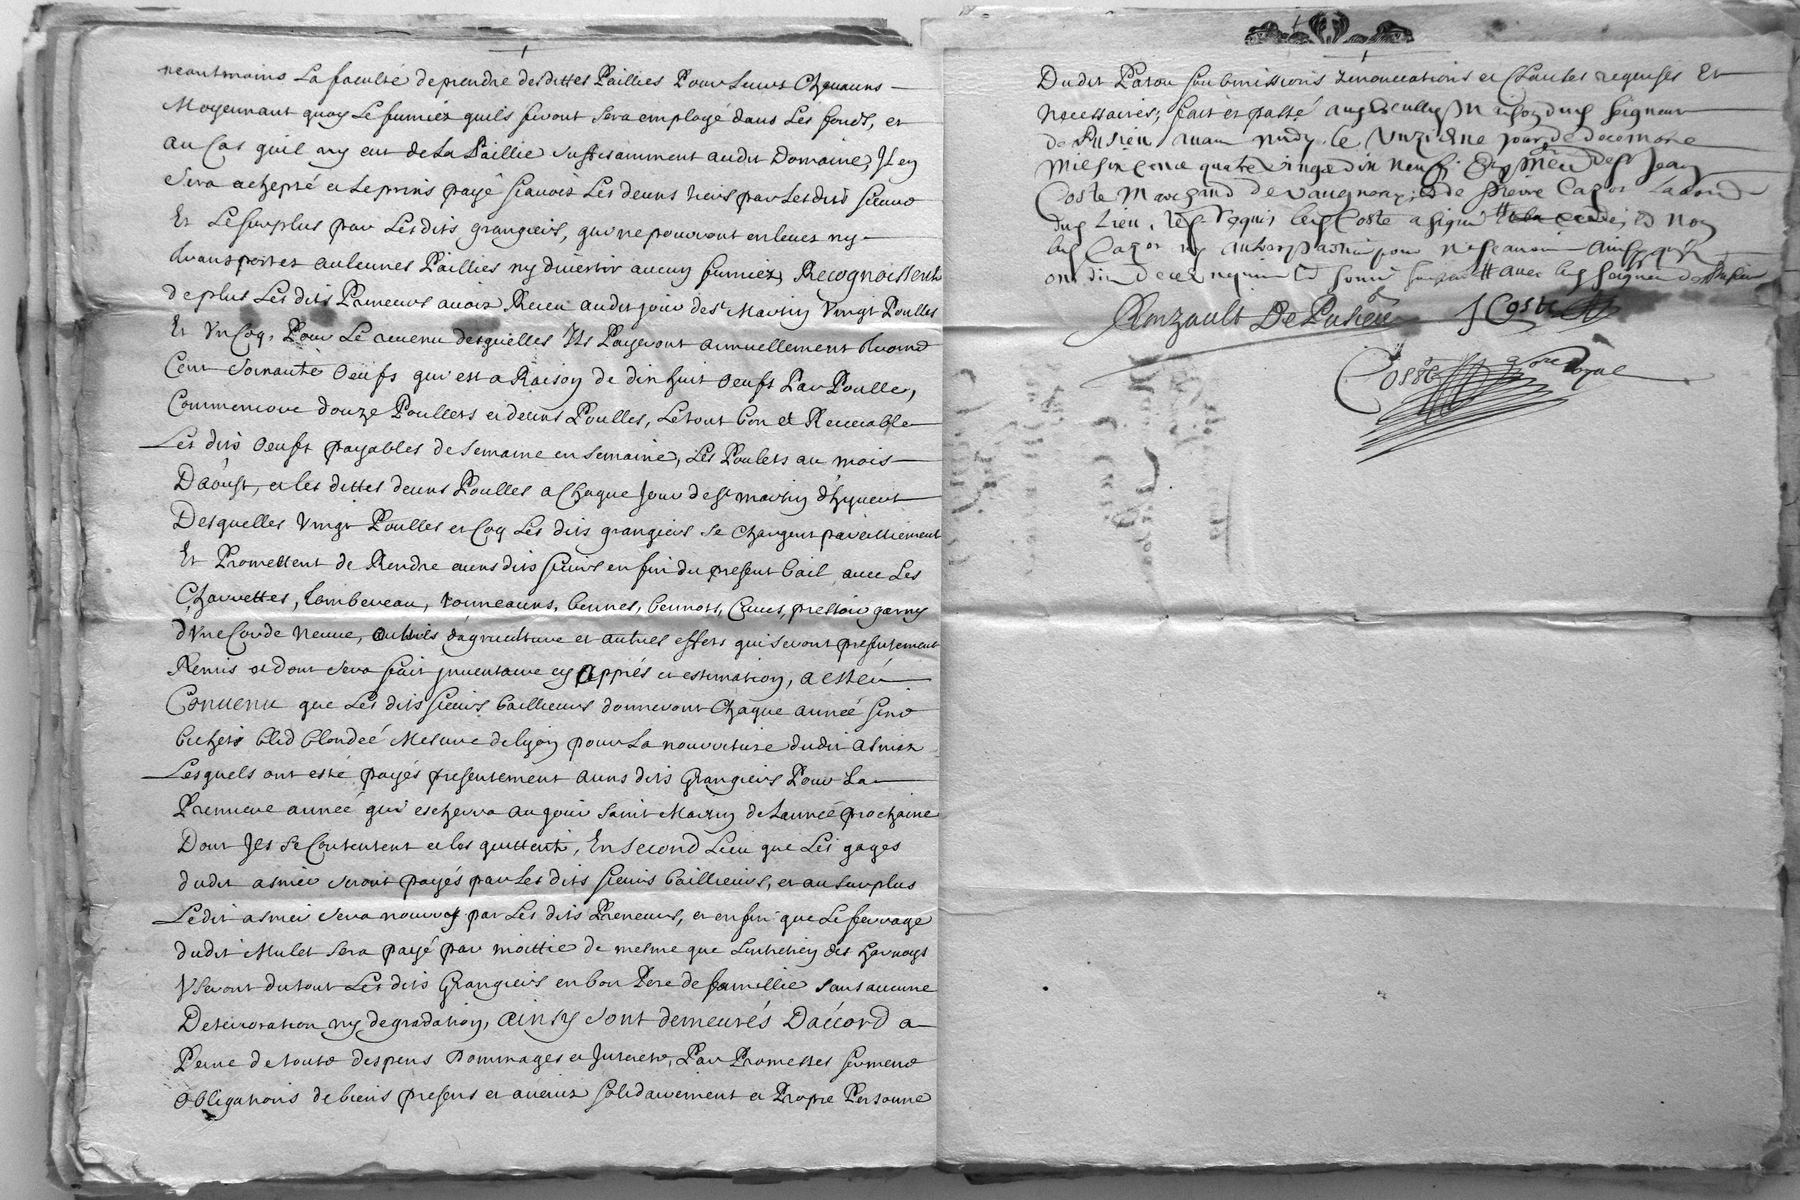 neantmoins La faculté de prendre des dittes Pailles Pour Leurs Chevauns
Moyennant quoy Le fumiez quils feront sera employé dans Les fonds, et
au Cas quil ny eut de La Paillie suffisamment audit Domaine, Il en
sera achepté et Le prins payé scavoir Les deuns tiers par Lesdits sieurs
Et Le surplus par Lesdits grangiers, qui ne pourront enlever ny
transporter aulcunes Paillies ny divertir aucun fumiez, Recognoissent
de plus Les dits Preneurs avoir Receu audit jour de st Martin Vingt Poulles
Et Vn Coq, Pour Le revenu desquelles Ils Payeront annuellement Trois
Cent soixante Oeufs qui est a Raison de dix huit oeufs Par Poulle,
Comme encore douze Poullets et deuns Poulles, Le tout bon et Recevable
Les dits Oeufs payables de semaine en semaine, Les Poulets au mois
D'aoust, et les dittes deuns Poulles a Chaque Jour de st martin d'hyvert
Desquelles Vingt Poulles et Coq Les dits grangiers se Chargent pareilliement
Et Promettent de Rendre auns dits sieurs en fin du present bail, avec Les
Charrettes, tombereau, tonneauns, bennes, bennots, Cuves, pressoir garny
d'Vne Corde Neuve, outtils d'agriculture et autres effets qui seront presentement
Remis et dont sera fait Inventaire cy Appres et estimation, a esté
Convenu que Les dits sieurs baillieurs donneront Chaque année sino
bichets bled blondeé Mesure de lyon pour La nourriture dudit asnier
Lesquels ont esté payés presentement auns dits Grangiers Pour La
Premiere année qui eschera au jour saint Martin de L'année prochaine
Dont Ils se Contentent et les quittent, En second Lieu que Les gages
dudit asnier seront payés par Les dits sieurs baillieurs, et au surplus
Ledit asnier sera nourry par Les dits Preneurs, et en fin que Le ferrage
dudit Mulet sera payé par moittie de mesme que L'entretien des harnays
Vseront du tout Les dits Grangiers en bon Pere de famillie sans aucune
Deterioration ny degradation, ainsy sont demeurés D'accord a
Peine de touts despens Dommages et Interets, Par Promesses serment
Obligations de biens presens et avenir solidairement et Propre Personne
Dudit Patou soubmissions renonciations et Clauses requises Et
necessaires; fait et passé audit maison dud seigneur
de Pusieu avan midy le Vnzieme jour de decembre
mil six cent quatre vingt dix neuf; En pñce de sr Jean
Coste Marchand de Vaugneray, et de pierre Cazot
dud Lieu, tes. requis led Coste a signé et non
led Cazot ny autres parties pour ne scavoir
ont dit de ce requis et sommés avec led seigneur de Pusieu
Anzault De Pusieu J Coste
Coste nore Royal